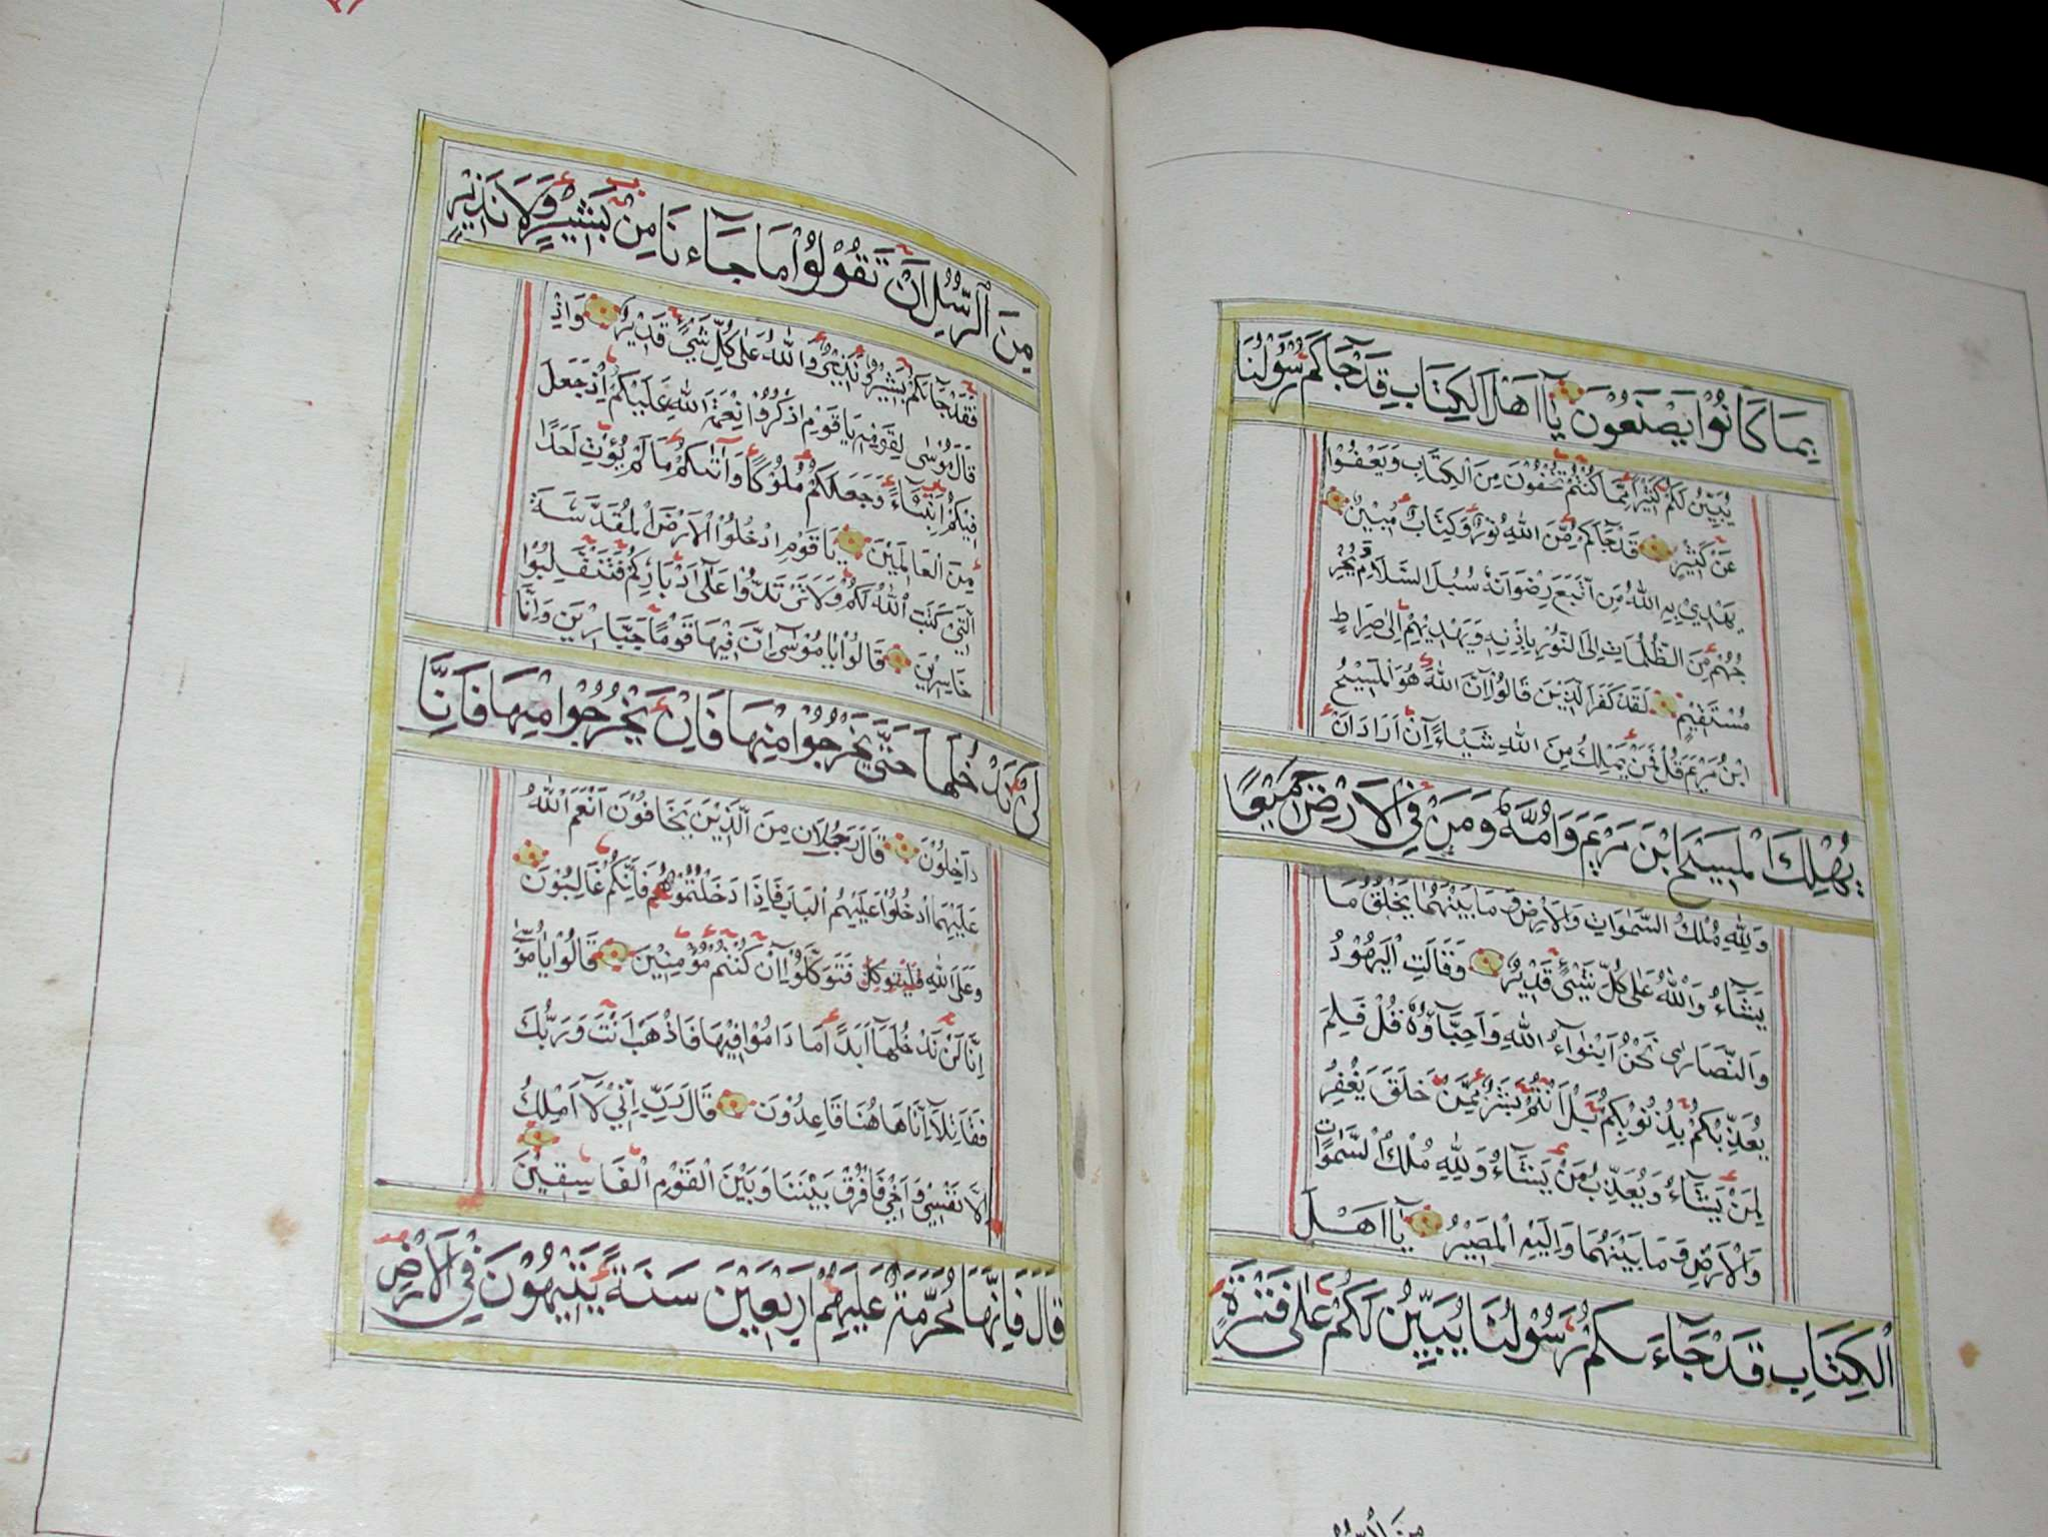 بِمَا كَانُوْا يَصْنَعُوْنَ يَآ اَهْلَ الْكِتَابِ قَدْ جَآكُمْ رَسُوْلُنَا
يُبَيِّنُ لَكُمْ كَثِيْرًا مِمَّا كُنْتُمْ تُخْفُوْنَ مِنَ الْكِتَابِ وَيَعْفُوْا
عَنْ كَثِيْرٍ قَدْ جَآكُمْ مِّنَ اللّٰهِ نُوْرٌ وَكِتَابٌ مُبِيْنٌ
يَهْدِيْ بِهِ اللّٰهُ مِنِ اتَّبَعَ رِضْوَانَهُ سُبُلَ السَّلَامِ وَيُخْرِ
جُهُمْ مِنَ الظُّلُمَاتِ اِلَى النُّوْرِ بِاِذْنِهِ وَيَهْدِيْهِمْ اِلٰى صِرَاطٍ
مُسْتَقِيْمٍ لَقَدْ كَفَرَ الَّذِيْنَ قَالُوْآ اِنَّ اللّٰهَ هُوَ الْمَسِيْحُ
ابْنُ مَرْيَمَ قُلْ فَمَنْ يَمْلِكُ مِنَ اللّٰهِ شَيْـاءً اِنْ اَرَادَ اَنْ
يُهْلِكَ الْمَسِيْحَ ابْنَ مَرْيَمَ وَاُمَّهُ وَمَنْ فِي الْاَرْضِ جَمِيْعًا
وَلِلّٰهِ مُلْكُ السَّمٰوَاتِ وَالْاَرْضِ وَمَا بَيْنَهُمَا يَخْلُقُ مَا
يَشَآءُ وَاللّٰهُ عَلٰى كُلِّ شَيْئٍ قَدِيْرٌ وَقَالَتِ الْيَهُوْدُ
وَالنَّصَارٰى نَحْنُ اَبْنٰوآءُ اللّٰهِ وَاَحِبَّآؤُهُ قُلْ فَلِمَ
يُعَذِّبُكُمْ بِذُنُوْبِكُمْ بَلْ اَنْتُمْ بَشَرٌ مِمَّنْ خَلَقَ يَغْفِرُ
لِمَنْ يَشَآءُ وَيُعَذِّبُ مَنْ يَشَآءُ وَلِلّٰهِ مُلْكُ السَّمٰوَاتِ
وَالْاَرْضِ وَمَا بَيْنَهُمَا وَاِلَيْهِ الْمَصِيْرُ يَآ اَهْلَ
الْكِتَابِ قَدْ جَآءَكُمْ رَسُوْلُنَا يُبَيِّنُ لَكُمْ عَلٰى فَتْرَةٍ
مِنَ الرُّسُلِ
مِنَ الرُّسُلِ اَنْ تَقُوْلُوْا مَا جَآءَنَا مِنْ بَشِيْرٍ وَلَا نَذِيْرٍ
فَقَدْ جَآئَكُمْ بَشِيْرٌ وَنَذِيْرٌ وَاللّٰهُ عَلٰى كُلِّ شَيْئٍ قَدِيْرٌ وَاِذْ
قَالَ مُوْسٰى لِقَوْمِهِ يَا قَوْمِ اذْكُرُوْا نِعْمَةَ اللّٰهِ عَلَيْكُمْ اِذْ جَعَلَ
فِيْكُمْ اَنْبِيَآءَ وَجَعَلَكُمْ مُلُوْكًا وَاٰتٰىكُمْ مَا لَمْ يُؤْتِ اَحَدًا
مِنَ الْعَالَمِيْنَ يَا قَوْمِ ادْخُلُوا الْاَرْضَ الْمُقَدَّسَةَ
الَّتِيْ كَتَبَ اللّٰهُ لَكُمْ وَلَا تَرْتَدُّوْا عَلٰٓى اَدْبَارِكُمْ فَتَنْقَلِبُوْا
خَاسِرِيْنَ قَالُوْا يَا مُوْسٰٓى اِنَّ فِيْهَا قَوْمًا جَبَّارِيْنَ وَاِنَّا
لَنْ نَدْخُلَهَا حَتّٰى يَخْرُجُوْا مِنْهَا فَاِنْ يَخْرُجُوْا مِنْهَا فَاِنَّا
دَاخِلُوْنَ قَالَ رَجُلَانِ مِنَ الَّذِيْنَ يَخَافُوْنَ اَنْعَمَ اللّٰهُ
عَلَيْهِمَا ادْخُلُوْا عَلَيْهِمُ الْبَابَ فَاِذَا دَخَلْتُمُوْهُ فَاِنَّكُمْ غَالِبُوْنَ
وَعَلَى اللّٰهِ فَتَوَكَّلُوْآ اِنْ كُنْتُمْ مُؤْمِنِيْنَ قَالُوْا يَا مُوْسٰٓى
اِنَّا لَنْ نَدْخُلَهَآ اَبَدًا مَا دَامُوْا فِيْهَا فَاذْهَبْ اَنْتَ وَرَبُّكَ
فَقَاتِلَآ اِنَّا هَاهُنَا قَاعِدُوْنَ قَالَ رَبِّ اِنِّيْ لَآ اَمْلِكُ
اِلَّا نَفْسِيْ وَاَخِيْ فَافْرُقْ بَيْنَنَا وَبَيْنَ الْقَوْمِ الْفَاسِقِيْنَ
قَالَ فَاِنَّهَا مُحَرَّمَةٌ عَلَيْهِمْ اَرْبَعِيْنَ سَنَةً يَتِيْهُوْنَ فِي الْاَرْضِ